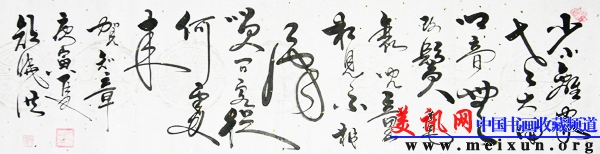 少小離家
老大回
鄉音無
改鬢毛
衰兒童
相見不相
識
笑問客從
何處
來
賀知章
庚寅夏
洪
美讯网 中国书画收藏频道
www.meixun.org